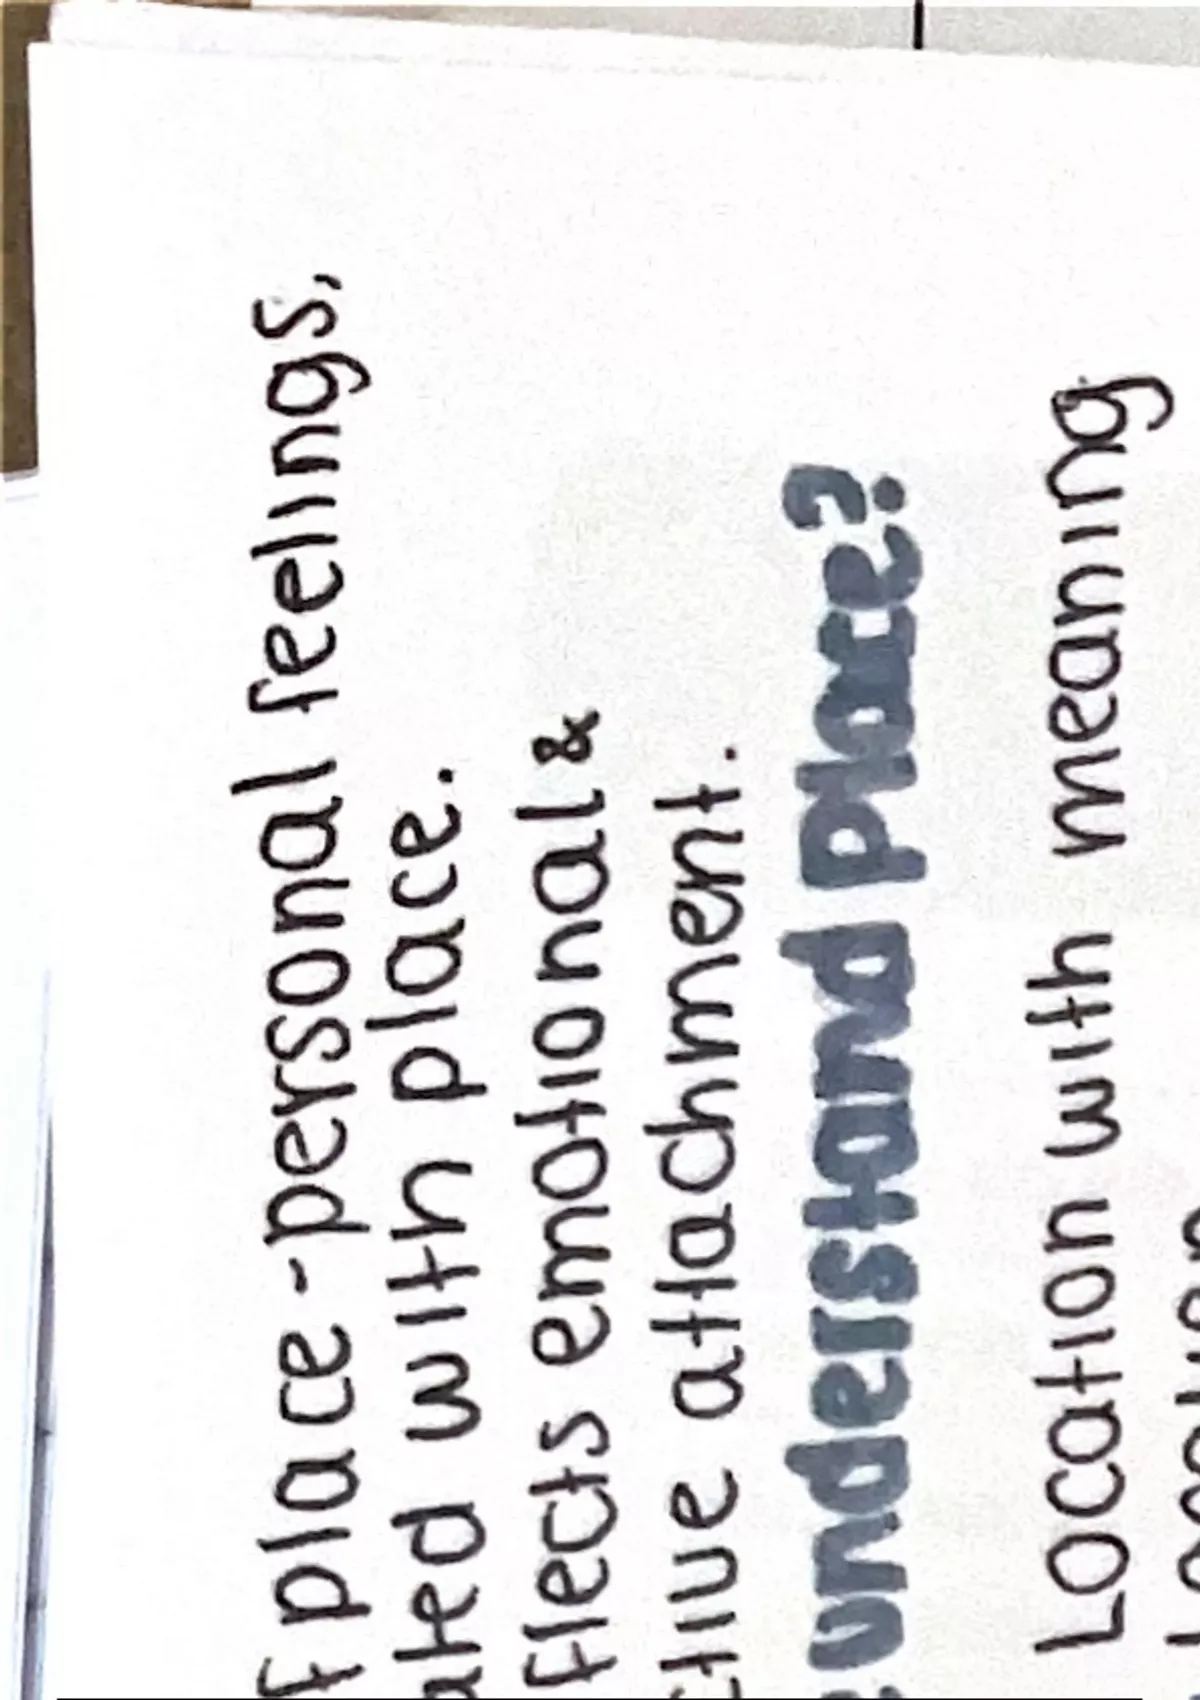 f place - personal feelings,
ated with place.
flects emotional &
tive attachment.
understand place?
Location with meaning
Location